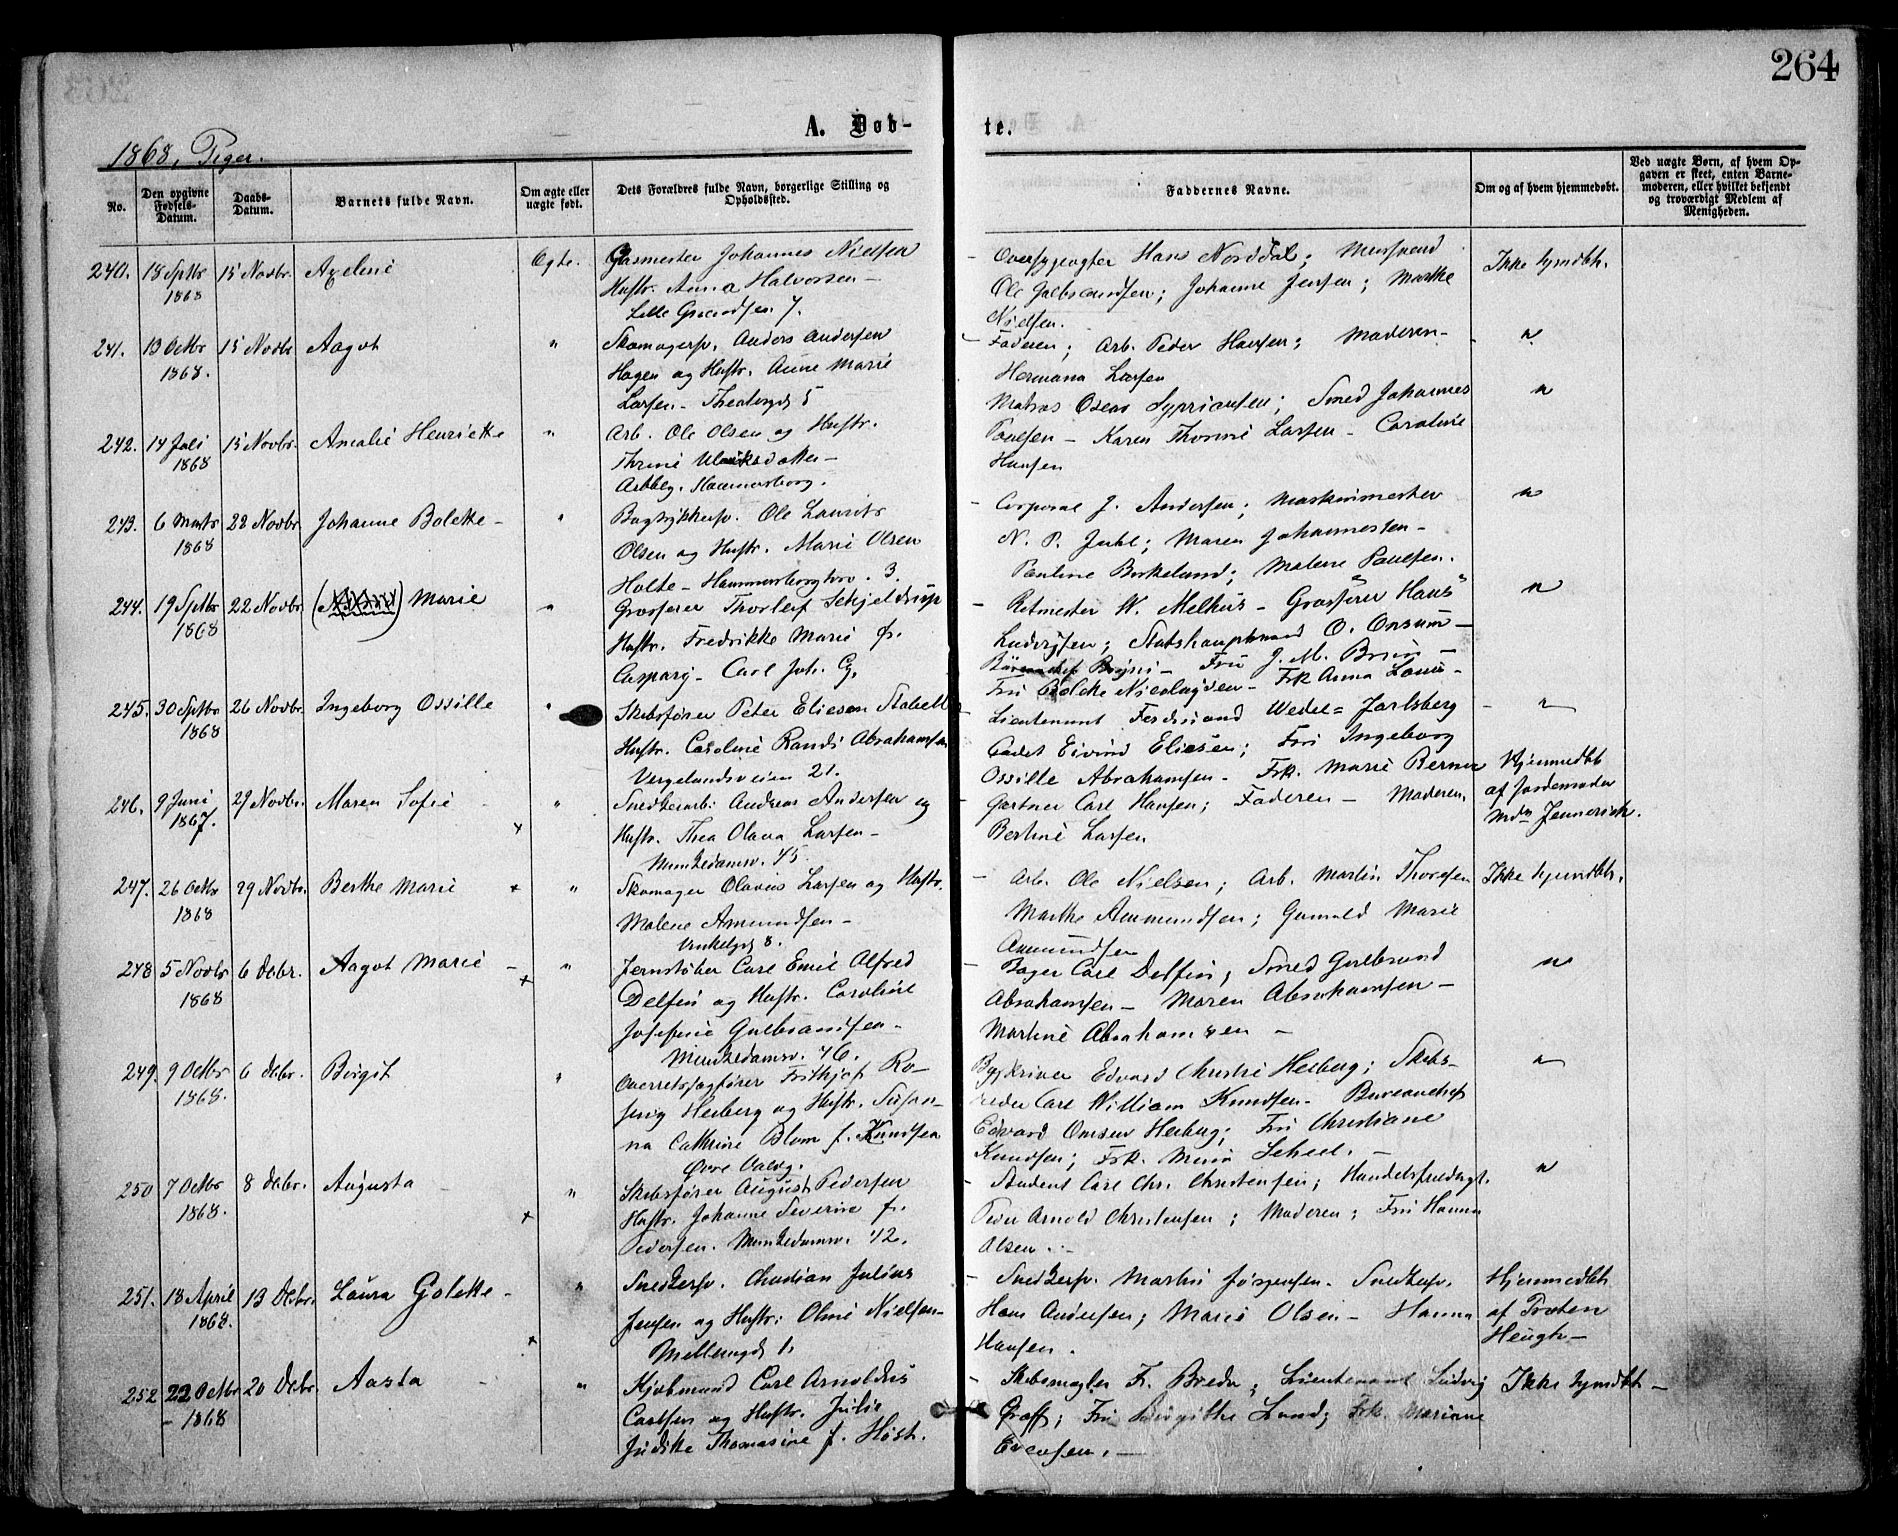 264
A. Døb-
te.
1868, Piger.
No.
Den opgivne Fødsels-Datum.
Daabs-Datum.
Barnets fulde Navn.
Om ægte eller uægte født.
Dets Forældres fulde Navn, borgerlige Stilling og Opholdssted.
Faddernes Navne.
Om og af hvem hjemmedøbt.
Ved uægte Børn, af hvem Op-
gaven er skeet, enten Barne-
moderen, eller hvilket bekjendt
og troværdigt Medlem af
Menigheden.
240. 18 Sptbr 1868 15 Novbr. Axeline Ægte.
Gasmester Johannes Nielsen
Hustr. Anna Halvorsen -
Lille Grændsen 7.
Hans Norddal;
Ole Johanne Jensen; Marthe
Nielsen.
Ikke hjmdbt.
241. 13 Octbr 1868. 15 Novbr Aagot "
Skomagersv. Anders Andersen
Hagen og Hustr. Anne Marie
Larsen - Theatergd 5
Faderen; Arb. Peder Hansen; Moderen -
Hermana Larsen
"
242. 14 Juli 1868 15 Novbr. Amalie Henriette "
Arb. Ole Olsen og Hustr.
Thrine
Arbbg. Hammersborg.
Matros Oscar Smed Johannes
Poulsen - Karen Thorine Larsen - Caroline
Hansen
"
243. 6 Marts 1868 22 Novbr Johanne Bolette - "
Bogtrykkersv. Ole Laurits
Olsen og Hustr. Marie Olsen
Holte - Hammersborgtorv. 3.
Corporal J. Andersen; Maskinmester
N. P. Juhl; Maren Johannesen -
Pauline Birkelund; Malene Paulsen.
"
244. 19 Sptbr 1868 22 Novbr. Marie "
Grosserer Thorleif Schjelderup
Hustr. Fredrikke Marie f.
Caspary - Carl Joh. G.
Retmester W. Melhus - Grosserer Hans
Ludvigsen; Stadshauptmand O. Onsum -
Fru J. M.
Fru Nicolaysen - Frk Anna
"
245. 30 Sptbr 1868 26 Novbr. Ingeborg Ossille "
Skibsfører Peter Eliesen Stabell
Hustr. Caroline Randi Abrahamsen
Vergelandsveien 21.
Lieutenant Ferdinand Wedel=Jarlsberg
Cadet Eivind Eliesen; Fru Ingeborg
Ossille Abrahamsen - Frk. Marie Berner
"
246. 9 Juni 1867. 29 Novbr. Maren Sofie "
Snedkerarb. Andreas Andersen og
Hustr. Thea Olava Larsen -
Munkedamsv. 45.
Gartner Carl Hansen; Faderen - Moderen.
Bertine Larsen
Hjemmedbt
af Jordemoder
Mdm Jennerich.
247. 26 Octbr 1868 29 Novbr. Berthe Marie "
Skomager Olavus Larsen og Hustr.
Malene Amundsen -
Vinkelgd 8.
Arb. Ole Nielsen; Arb. Martin Thoresen
Marthe Ammundsen; Gunild Marie
Ammundsen
Ikke hjemdbt.
248 5 Novbr 1868 6 Debr. Aagot Marie - "
Jernstøber Carl Emil Alfred
Delfin og Hustr. Caroline
Josefine Gulbrandsen -
Munkedamsv. 46.
Bager Carl Delfin; Smed Gulbrand
Abrahamsen - Maren Abrahamsen -
Martine Abrahamsen -
"
249. 9 Octbr 1868. 6 Debr. Birgit "
Overretssagfører Frithjof Ro-
sing Heiberg og Hustr. Susan-
na Cathrine Blom f. Knudsen
Øvre Voldg.
Byskriver Edvard Christie Heiberg; Skibs-
reder Carl William Knudsen - Bureauchef
Edvard Omsen Heiberg; Fru Christiane
Knudsen; Frk. Scheel. -
"
250 7 Octbr 1868. 8 Debr. Augusta "
Skibsfører August Pedersen
Hustr. Johanne Severine f.
Pedersen. Munkedamsv. 42.
Student Carl Chr. Christensen; Handelsfuldmgt.
Peder Arnold Christensen; Moderen; Fru Hanna
Olsen. -
"
251. 18 April 1868. 13 Debr. Laura Golette - "
Snedkersv. Christian Julius
Jensen og Hustr: Oline Nielsen -
Møllergd 1.
Snedkersv. Martin Jørgensen. Snedkersv.
Hans Andersen; Marie Olsen - Hanna
Hansen.
Hjemmedbt
af Prosten
Heugh -
252 22 Octbr 1868 20 Debr. Aasta "
Kjøbmand Carl Arnoldus
Carlsen og Hustr. Julie
Judithe Thomasine f. Høst.
Skibsmægler Fr. Breda; Lieutenant Ludvig
Graff; Fru Birgithe Lund; Frk. Mariane
Evensen. -
Ikke hjmdbt -